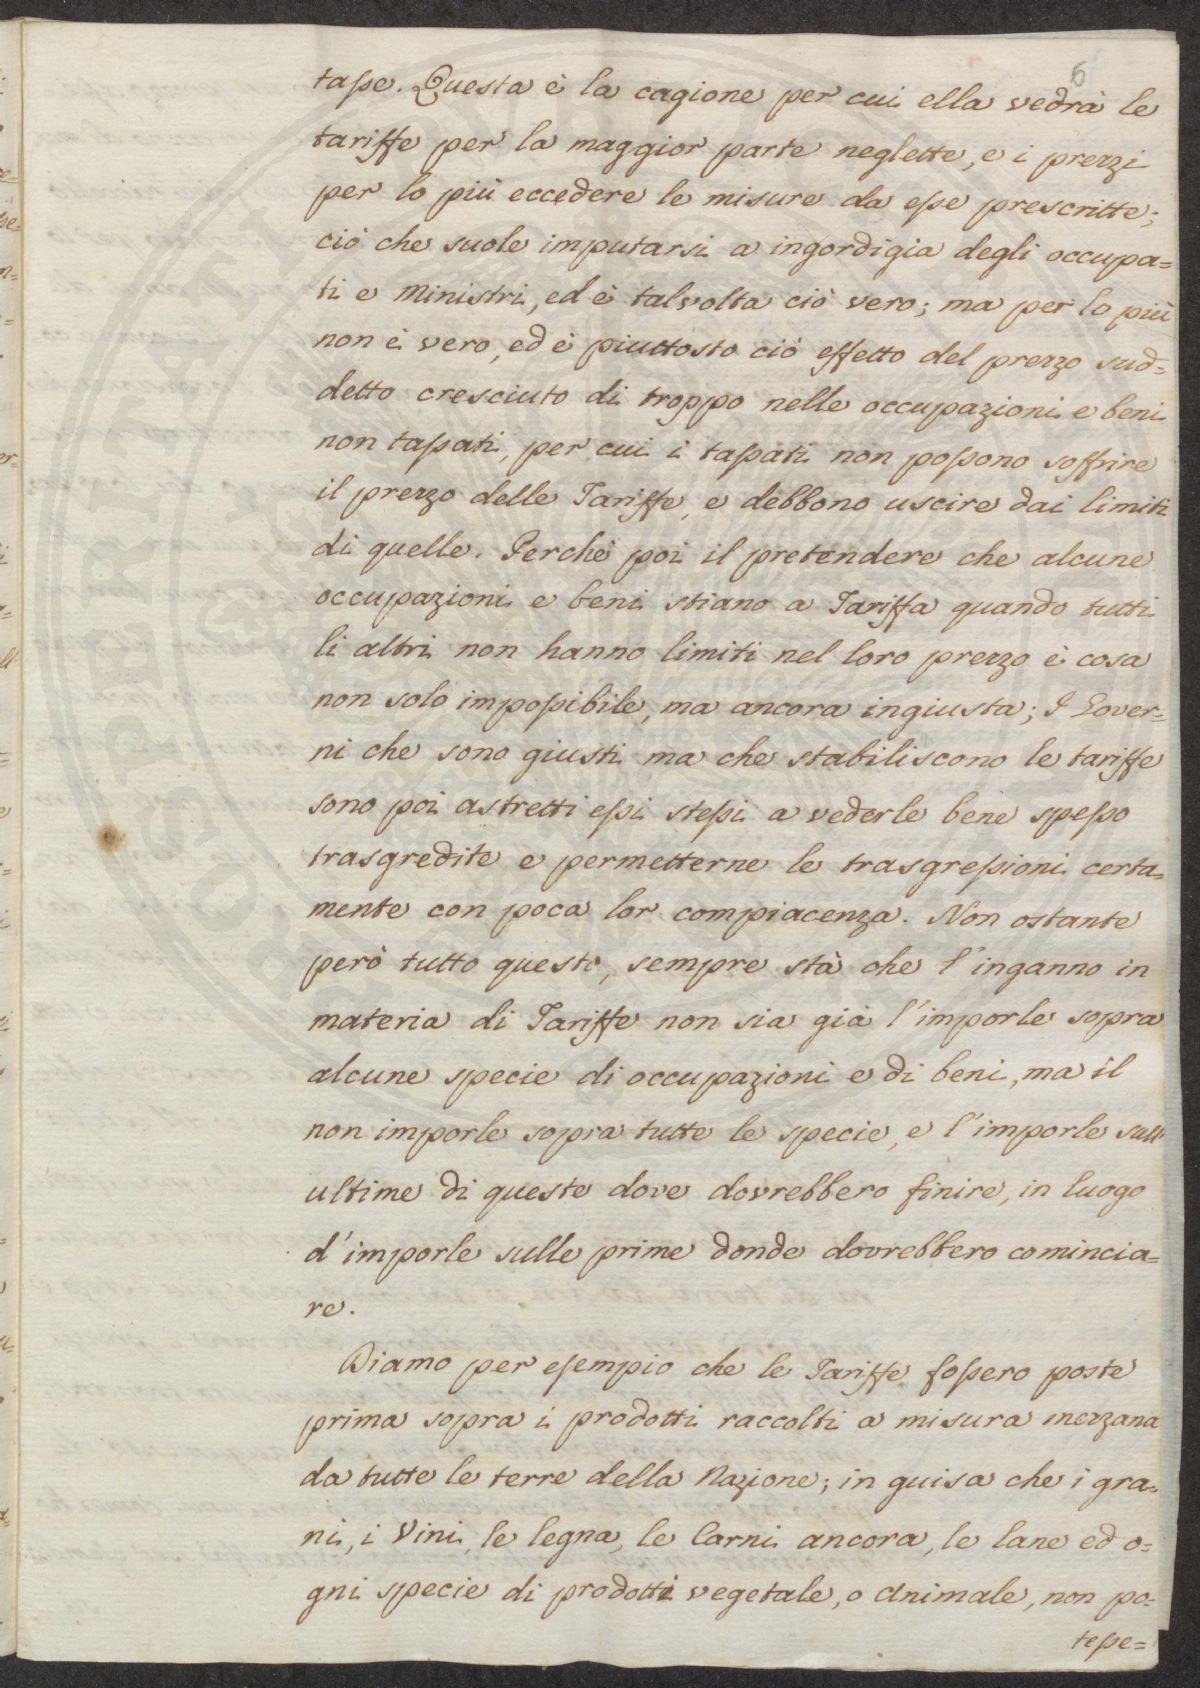 6
tasse. Questa è la cagione per cui ella vedrà le
tariffe per la maggior parte neglette, e i prezzi
per lo più eccedere le misure da esse prescritte;
ciò che suole imputarsi a ingordigia degli occupa=
ti e Ministri, ed è talvolta ciò vero; ma per lo più
non è vero, ed è piuttosto ciò effetto del prezzo sud=
detto cresciuto di troppo nelle occupazioni e beni
non tassati, per cui i tassati non possono soffrire
il prezzo delle Tariffe, e debbono uscire dai limiti
di quelle. Perchè poi il pretendere che alcune
occupazioni e beni stiano a Tariffa quando tutti
li altri non hanno limiti nel loro prezzo è cosa
non solo impossibile, ma ancora ingiusta; I Gover=
ni che sono giusti ma che stabiliscono le tariffe
sono poi astretti essi stessi a vederle bene spesso
trasgredite e permetterne le trasgressioni certa=
mente con poca lor compiacenza. Non ostante
però tutto questo, sempre stà che l'inganno in
materia di Tariffe non sia già l'imporle sopra
alcune specie di occupazioni e di beni, ma il
non imporle sopra tutte le specie, e l'imporle sull'
ultime di queste dove dovrebbero finire, in luogo
d'imporle sulle prime donde dovrebbero comincia=
re.
Diamo per esempio che le Tariffe fossero poste
prima sopra i prodotti raccolti a misura mezzana
da tutte le terre della Nazione; in guisa che i gra=
ni, i Vini, le legna, le Carni ancora, le lane ed o=
gni specie di prodotti vegetale, o Animale, non po=
tesse=